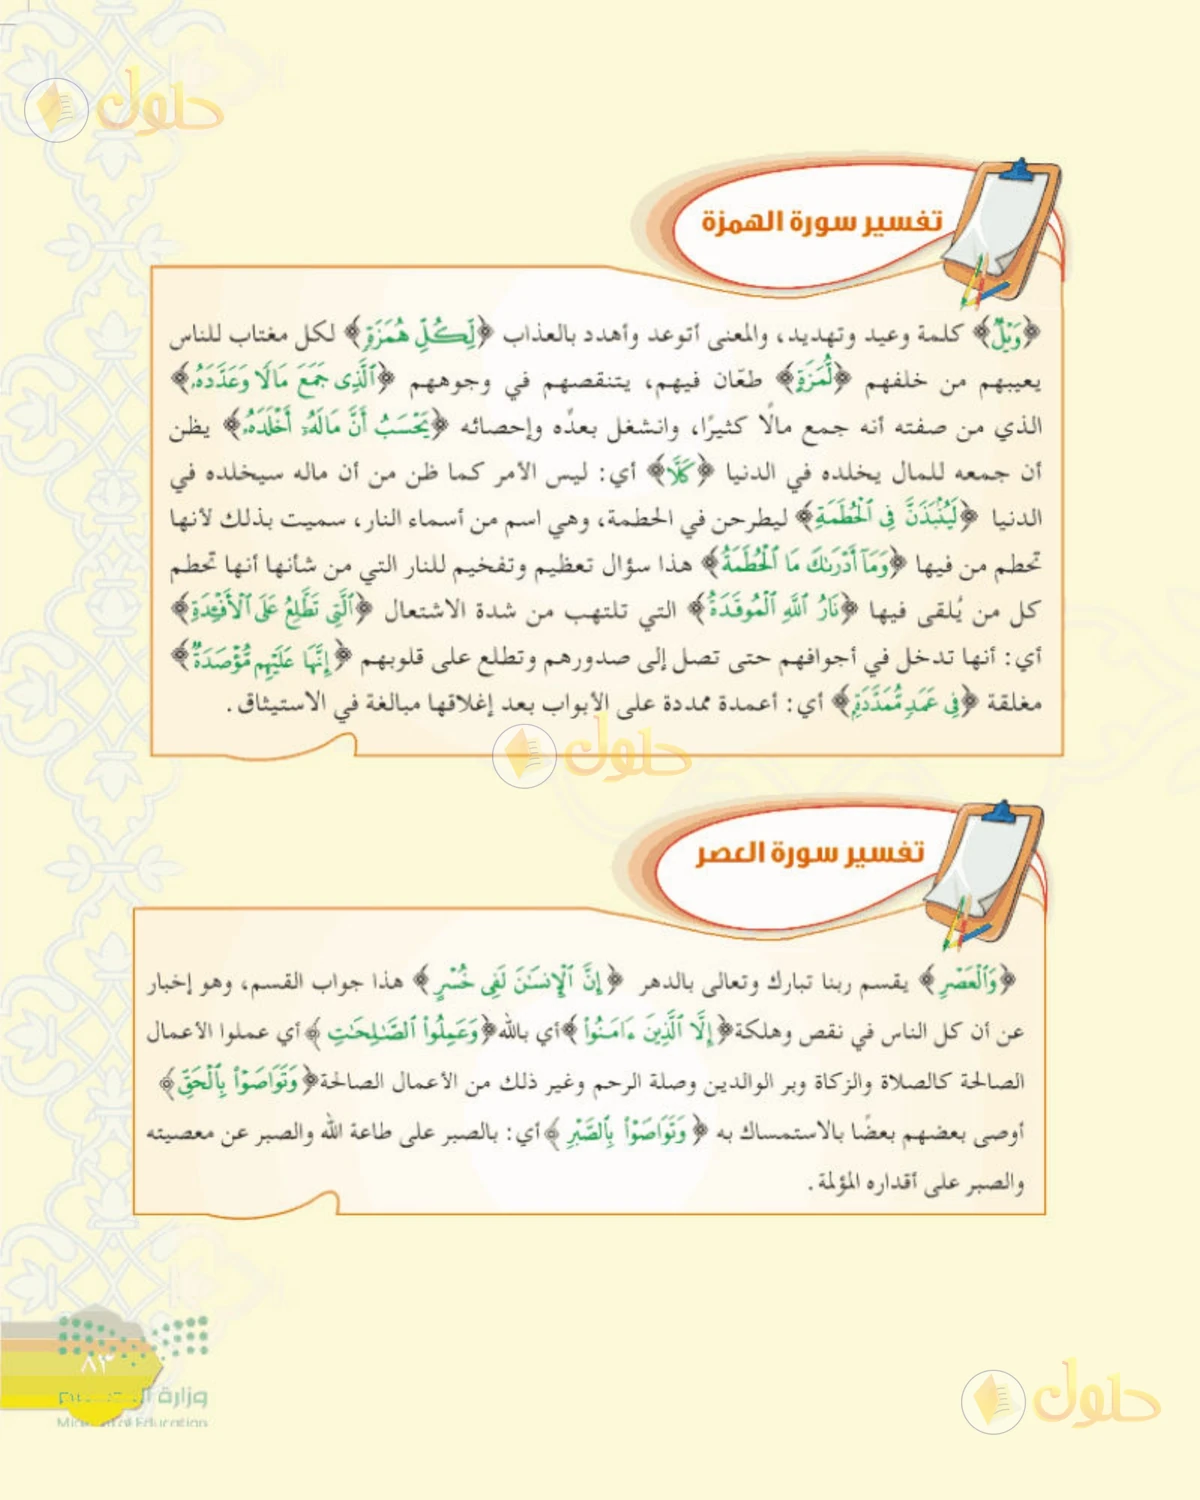 حلول
تفسير سورة الهمزة
﴿وَيْلٌ﴾ كلمة وعيد وتهديد، والمعنى أتوعد وأهدد بالعذاب ﴿لِّكُلِّ هُمَزَةٍ﴾ لكل مغتاب للناس
يعيبهم من خلفهم ﴿لُّمَزَةٍ﴾ طعّان فيهم، يتنقصهم في وجوههم ﴿ٱلَّذِى جَمَعَ مَالًا وَعَدَّدَهُۥ﴾
الذي من صفته أنه جمع مالًا كثيرًا، وانشغل بعدّه وإحصائه ﴿يَحْسَبُ أَنَّ مَالَهُۥٓ أَخْلَدَهُۥ﴾ يظن
أن جمعه للمال يخلده في الدنيا ﴿كَلَّا﴾ أي: ليس الأمر كما ظن من أن ماله سيخلده في
الدنيا ﴿لَيُنۢبَذَنَّ فِى ٱلْحُطَمَةِ﴾ ليطرحن في الحطمة، وهي اسم من أسماء النار، سميت بذلك لأنها
تحطم من فيها ﴿وَمَآ أَدْرَىٰكَ مَا ٱلْحُطَمَةُ﴾ هذا سؤال تعظيم وتفخيم للنار التي من شأنها أنها تحطم
كل من يُلقى فيها ﴿نَارُ ٱللَّهِ ٱلْمُوقَدَةُ﴾ التي تلتهب من شدة الاشتعال ﴿ٱلَّتِى تَطَّلِعُ عَلَى ٱلْأَفْـِٔدَةِ﴾
أي: أنها تدخل في أجوافهم حتى تصل إلى صدورهم وتطلع على قلوبهم ﴿إِنَّهَا عَلَيْهِم مُّؤْصَدَةٌ﴾
مغلقة ﴿فِى عَمَدٍ مُّمَدَّدَةٍۭ﴾ أي: أعمدة ممددة على الأبواب بعد إغلاقها مبالغة في الاستيثاق.
حلول
تفسير سورة العصر
﴿وَٱلْعَصْرِ﴾ يقسم ربنا تبارك وتعالى بالدهر ﴿إِنَّ ٱلْإِنسَـٰنَ لَفِى خُسْرٍ﴾ هذا جواب القسم، وهو إخبار
عن أن كل الناس في نقص وهلكة ﴿إِلَّا ٱلَّذِينَ ءَامَنُوا۟﴾ أي بالله ﴿وَعَمِلُوا۟ ٱلصَّـٰلِحَـٰتِ﴾ أي عملوا الأعمال
الصالحة كالصلاة والزكاة وبر الوالدين وصلة الرحم وغير ذلك من الأعمال الصالحة ﴿وَتَوَاصَوْا۟ بِٱلْحَقِّ﴾
أوصى بعضهم بعضًا بالاستمساك به ﴿وَتَوَاصَوْا۟ بِٱلصَّبْرِ﴾ أي: بالصبر على طاعة الله والصبر عن معصيته
والصبر على أقداره المؤلمة.
٨٣
وزارة
of Education
حلول